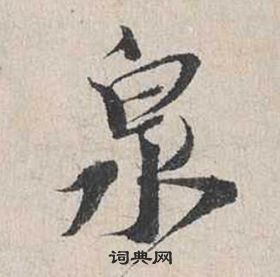 泉
词典网